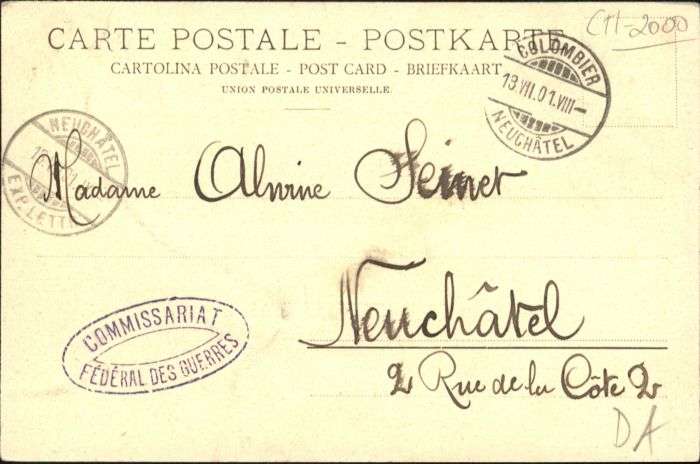 CH-2000
CARTE POSTALE - POSTKARTE
CARTOLINA POSTALE - POST CARD - BRIEFKAART
UNION POSTALE UNIVERSELLE.
COLOMBIER
13.VII.01.VIII-
NEUCHÂTEL
NEUCHÂTEL
EXP. LETTR
Madame Alwine Seinet
Neuchâtel
2 Rue de la Côte 2
COMMISSARIAT
FÉDÉRAL DES GUERRES
DA